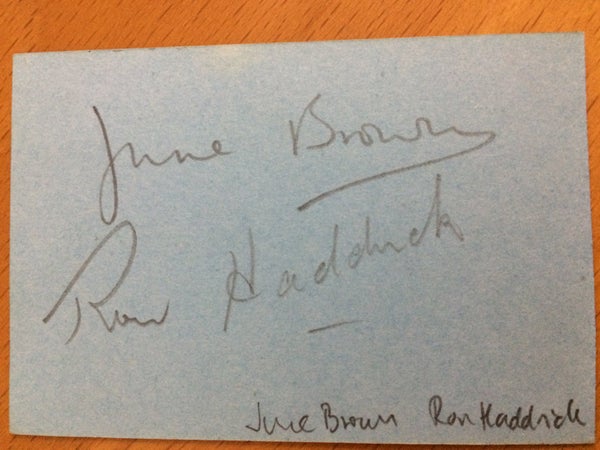 June Brown
Ron Haddrick
June Brown Ron Haddrick